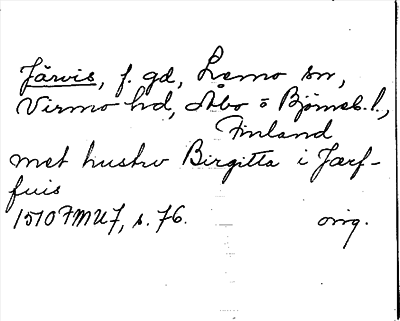 Järvis, f. gd, Lemo sn,
Virmo hd, Åbo o Björneb. l.,
Finland
met hustrv Birgitta i Jærf-
fuis
1510 FMU 7, s. 76. orig.